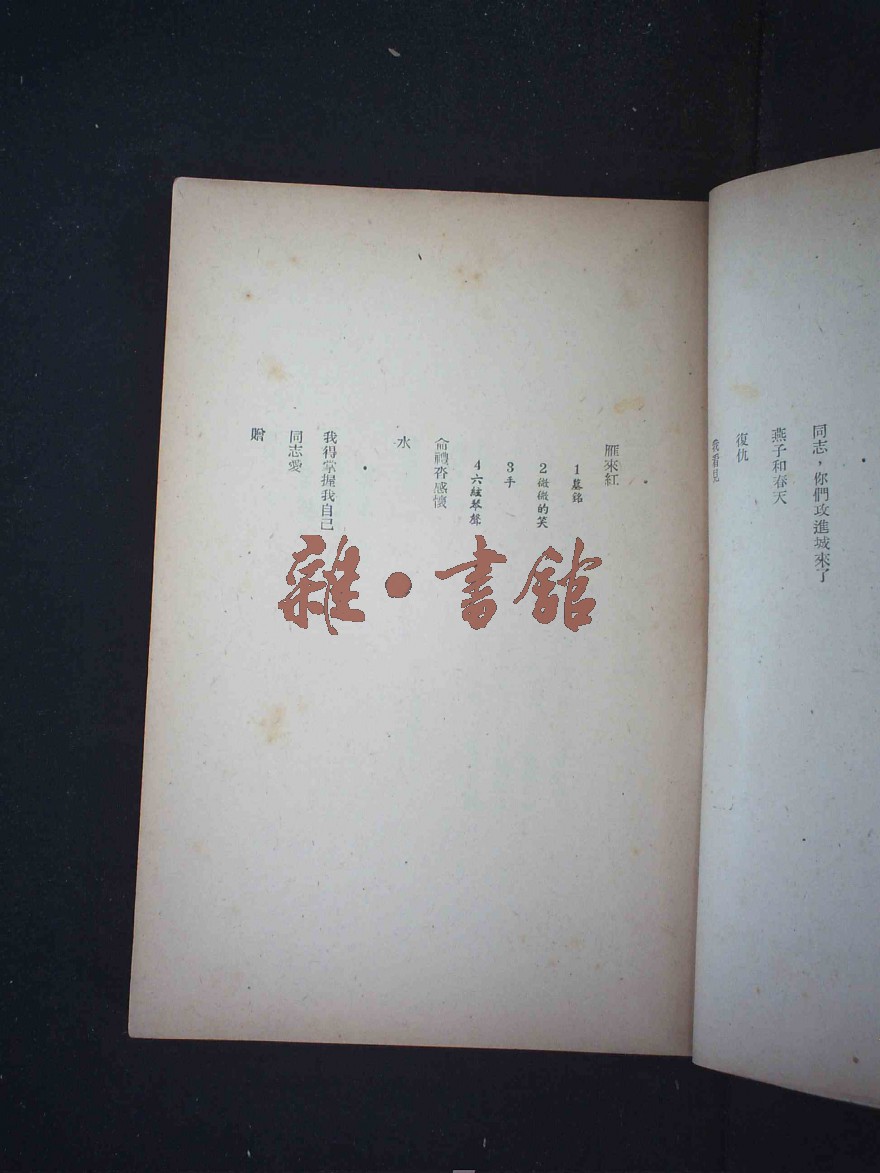 同志，你們攻進城來了
燕子和春天
復仇
我看見
雁來紅
1 墓銘
2 微微的笑
3 手
4 六絃琴聲
侖禮沓感懷
水
我得掌握我自己
同志愛
贈
雜•書館